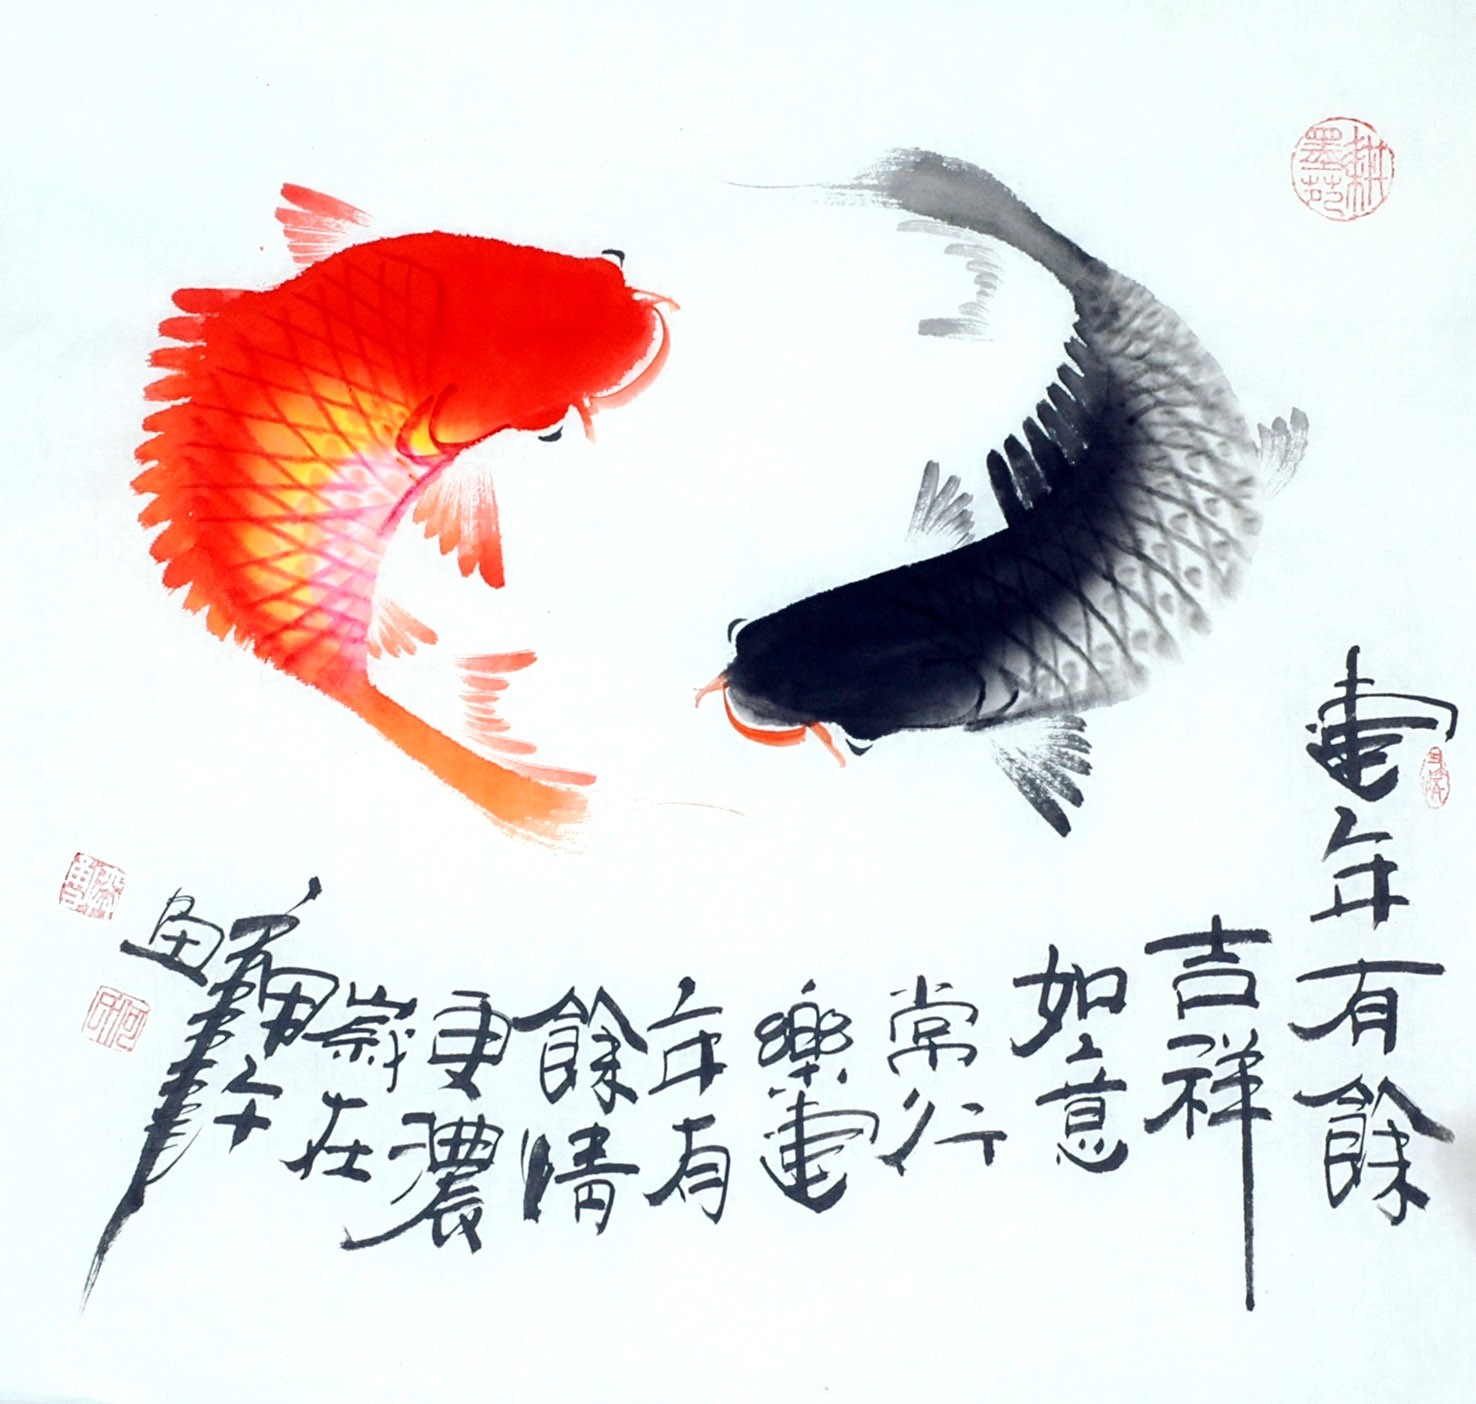 連年有餘
吉祥
如意
常行
樂連
年有
餘情
更濃
歲在